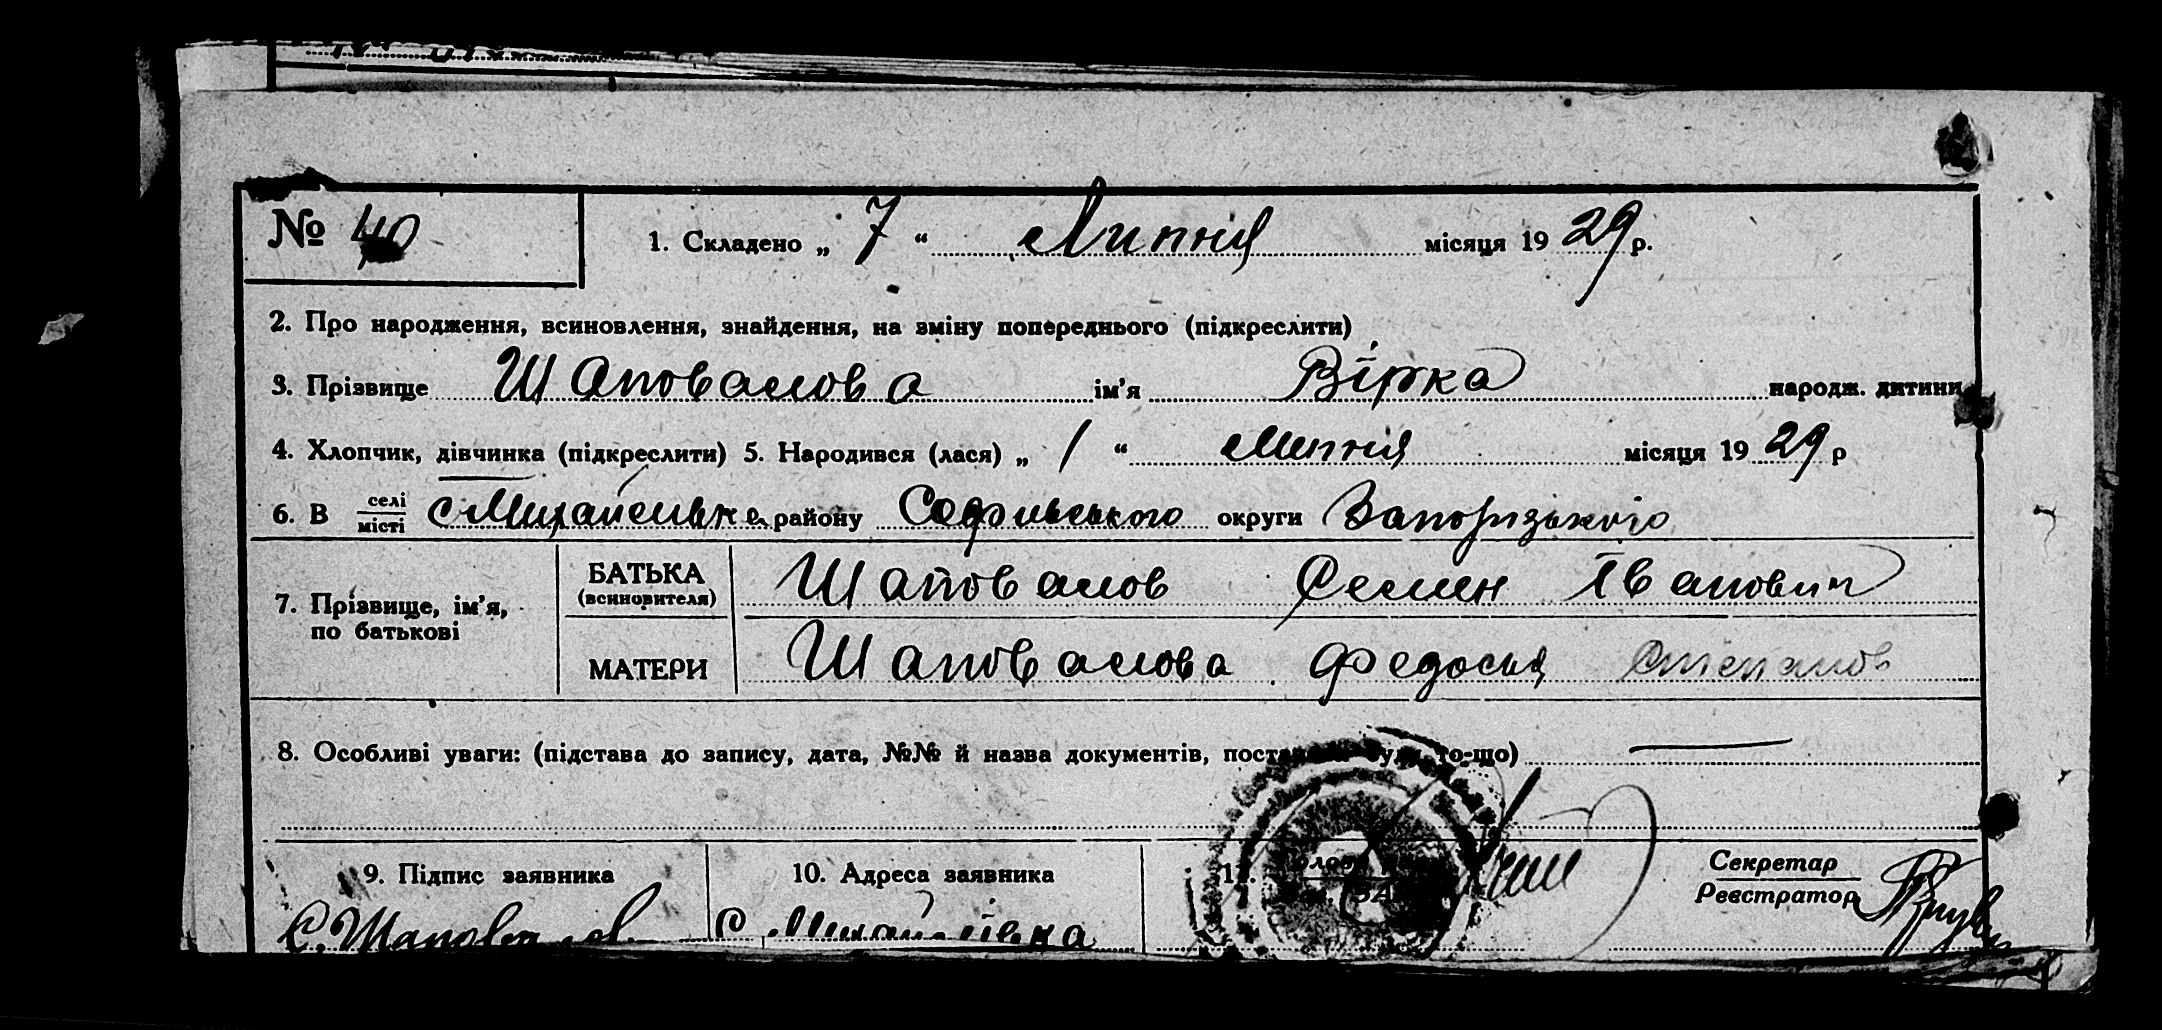 № 40
1. Складено „ 7 “ Липня місяця 19 29 р.
2. Про народження, всиновлення, знайдення, на зміну попереднього (підкреслити)
3. Прізвище Шаповалова ім’я Вірка народж. дитини
4. Хлопчик, дівчинка (підкреслити) 5. Народився (лася) „ 1 “ Липня місяця 19 29 р
6. В селі місті району округи Запорізького
7. Прізвище, ім’я, по батькові
БАТЬКА (всиновителя) Шаповалов Семен Іванович
МАТЕРИ Шаповалова Федосья Степанов
8. Особливі уваги: (підстава до запису, дата, №№ й назва документів, то-що)
9. Підпис заявника
С. Шаповалов
10. Адреса заявника
с. Михайлівка
11.
Секретар
Реєстратор